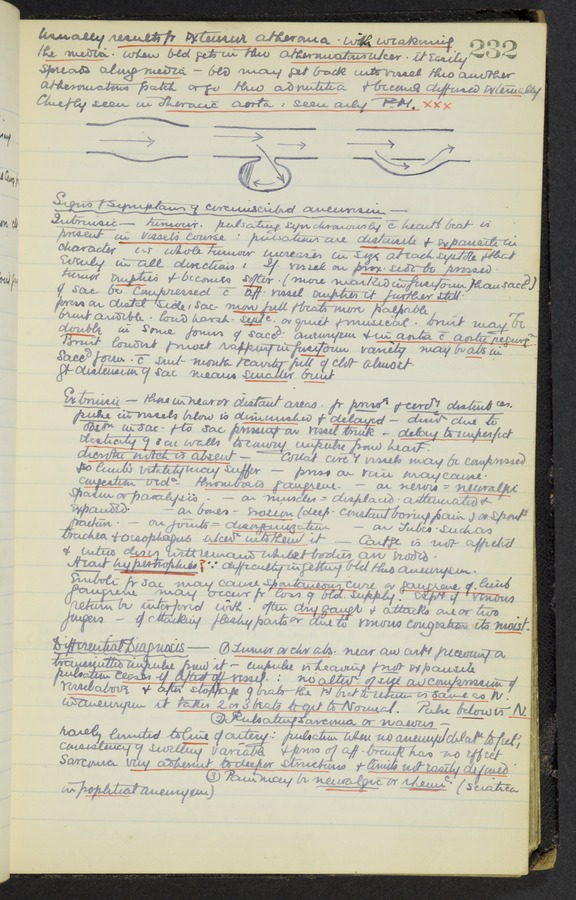 232
usually results fr extensive atheroma. with weakening
the media. when bld gets in thro atheromatous ulcer. it easily
spreads along media – bld may get back into vessel thro another
atheromatous patch or go thro adventitia & become diffused externally
Chiefly seen in thoracic aorta: seen only P.M. xxx
Signs & Symptoms of circumscribed aneurism —
Intrinsic — tumour. pulsating synchronously c̄ heart beat is
present in vessels course: pulsations are distensile & expansile in
character i.e. whole tumour increases in size at each systole & that
Evenly in all directions: If vessel on prox. side be pressed
tumor empties & becomes softer (more marked in fusiform than sacd)
if sac be compressed c̄ aff vessel empties it further still.
press on distal side, sac more full & beats more palpable
bruit audible. loud harsh. systc. or quiet & musical. bruit may be
double in some forms of sacd. aneurysm & in aorta c̄ aortic regurg.
Bruit loudest & most rapping in fusiform variety may be abs in
Saccd form. c̄ small mouth & cavity full of clot almost
Gt distension of sac means smaller bruit
Extrinsic — those in near or distant areas. fr presse & cercn disturbces.
pulse in vessels below is diminished & delayed – dimn due to
in sac. & to sac pressing on vessel trunk – delay to imperfect
elasticity of sac walls to convey impulse from heart.
dicrotic notch is absent — Collat circ vessels may be compressed
so limb's vitality may suffer — press on vein may cause
congestion œda. thrombosis gangrene. — on nerves = neuralgic
spasm or paralysis. — on muscles = displaced. attenuated &
expanded — on bones – erosion (deep. constant boring pain) or spont
fractn. — on joints = disorganization — on tubes such as
trachea & oesophagus ulcern into them it — Cartge is not affected
& intro discs will remain whilst bodies are eroded.
Heart hypertrophies? ∵ difficulty in getting bld thro aneurysm.
Emboli fr sac may cause spontaneous cure or gangrene of limb
Gangrene may occur fr loss of bld supply. Esply if venous
return be interfered with. often dry gangr & attacks one or two
fingers — if attacking fleshy parts or due to venous congestion its moist.
Differential Diagnosis — ① Tumor or chr abs. near an arty receiving a
transmitted impulse from it – impulse is heaving & not expansile
pulsation ceases if lifted off vessel: no altern of size on compression of
vessel above & after stoppage of beats the 1st beat to return is same as N.
in aneurysm it takes 2 or 3 beats to get to Normal. Pulse below is N.
② Pulsating Sarcoma or naevus —
rarely limited to line of artery: pulsation when no aneurysml dilatn to feel,
consistency of swelling variable & press of aff. trunk has no effect
Sarcoma very adherent to deeper structures & limits not easily defined
③ Pain may be neuralgic or rheumc (Sciatica
in popliteal aneurysm)